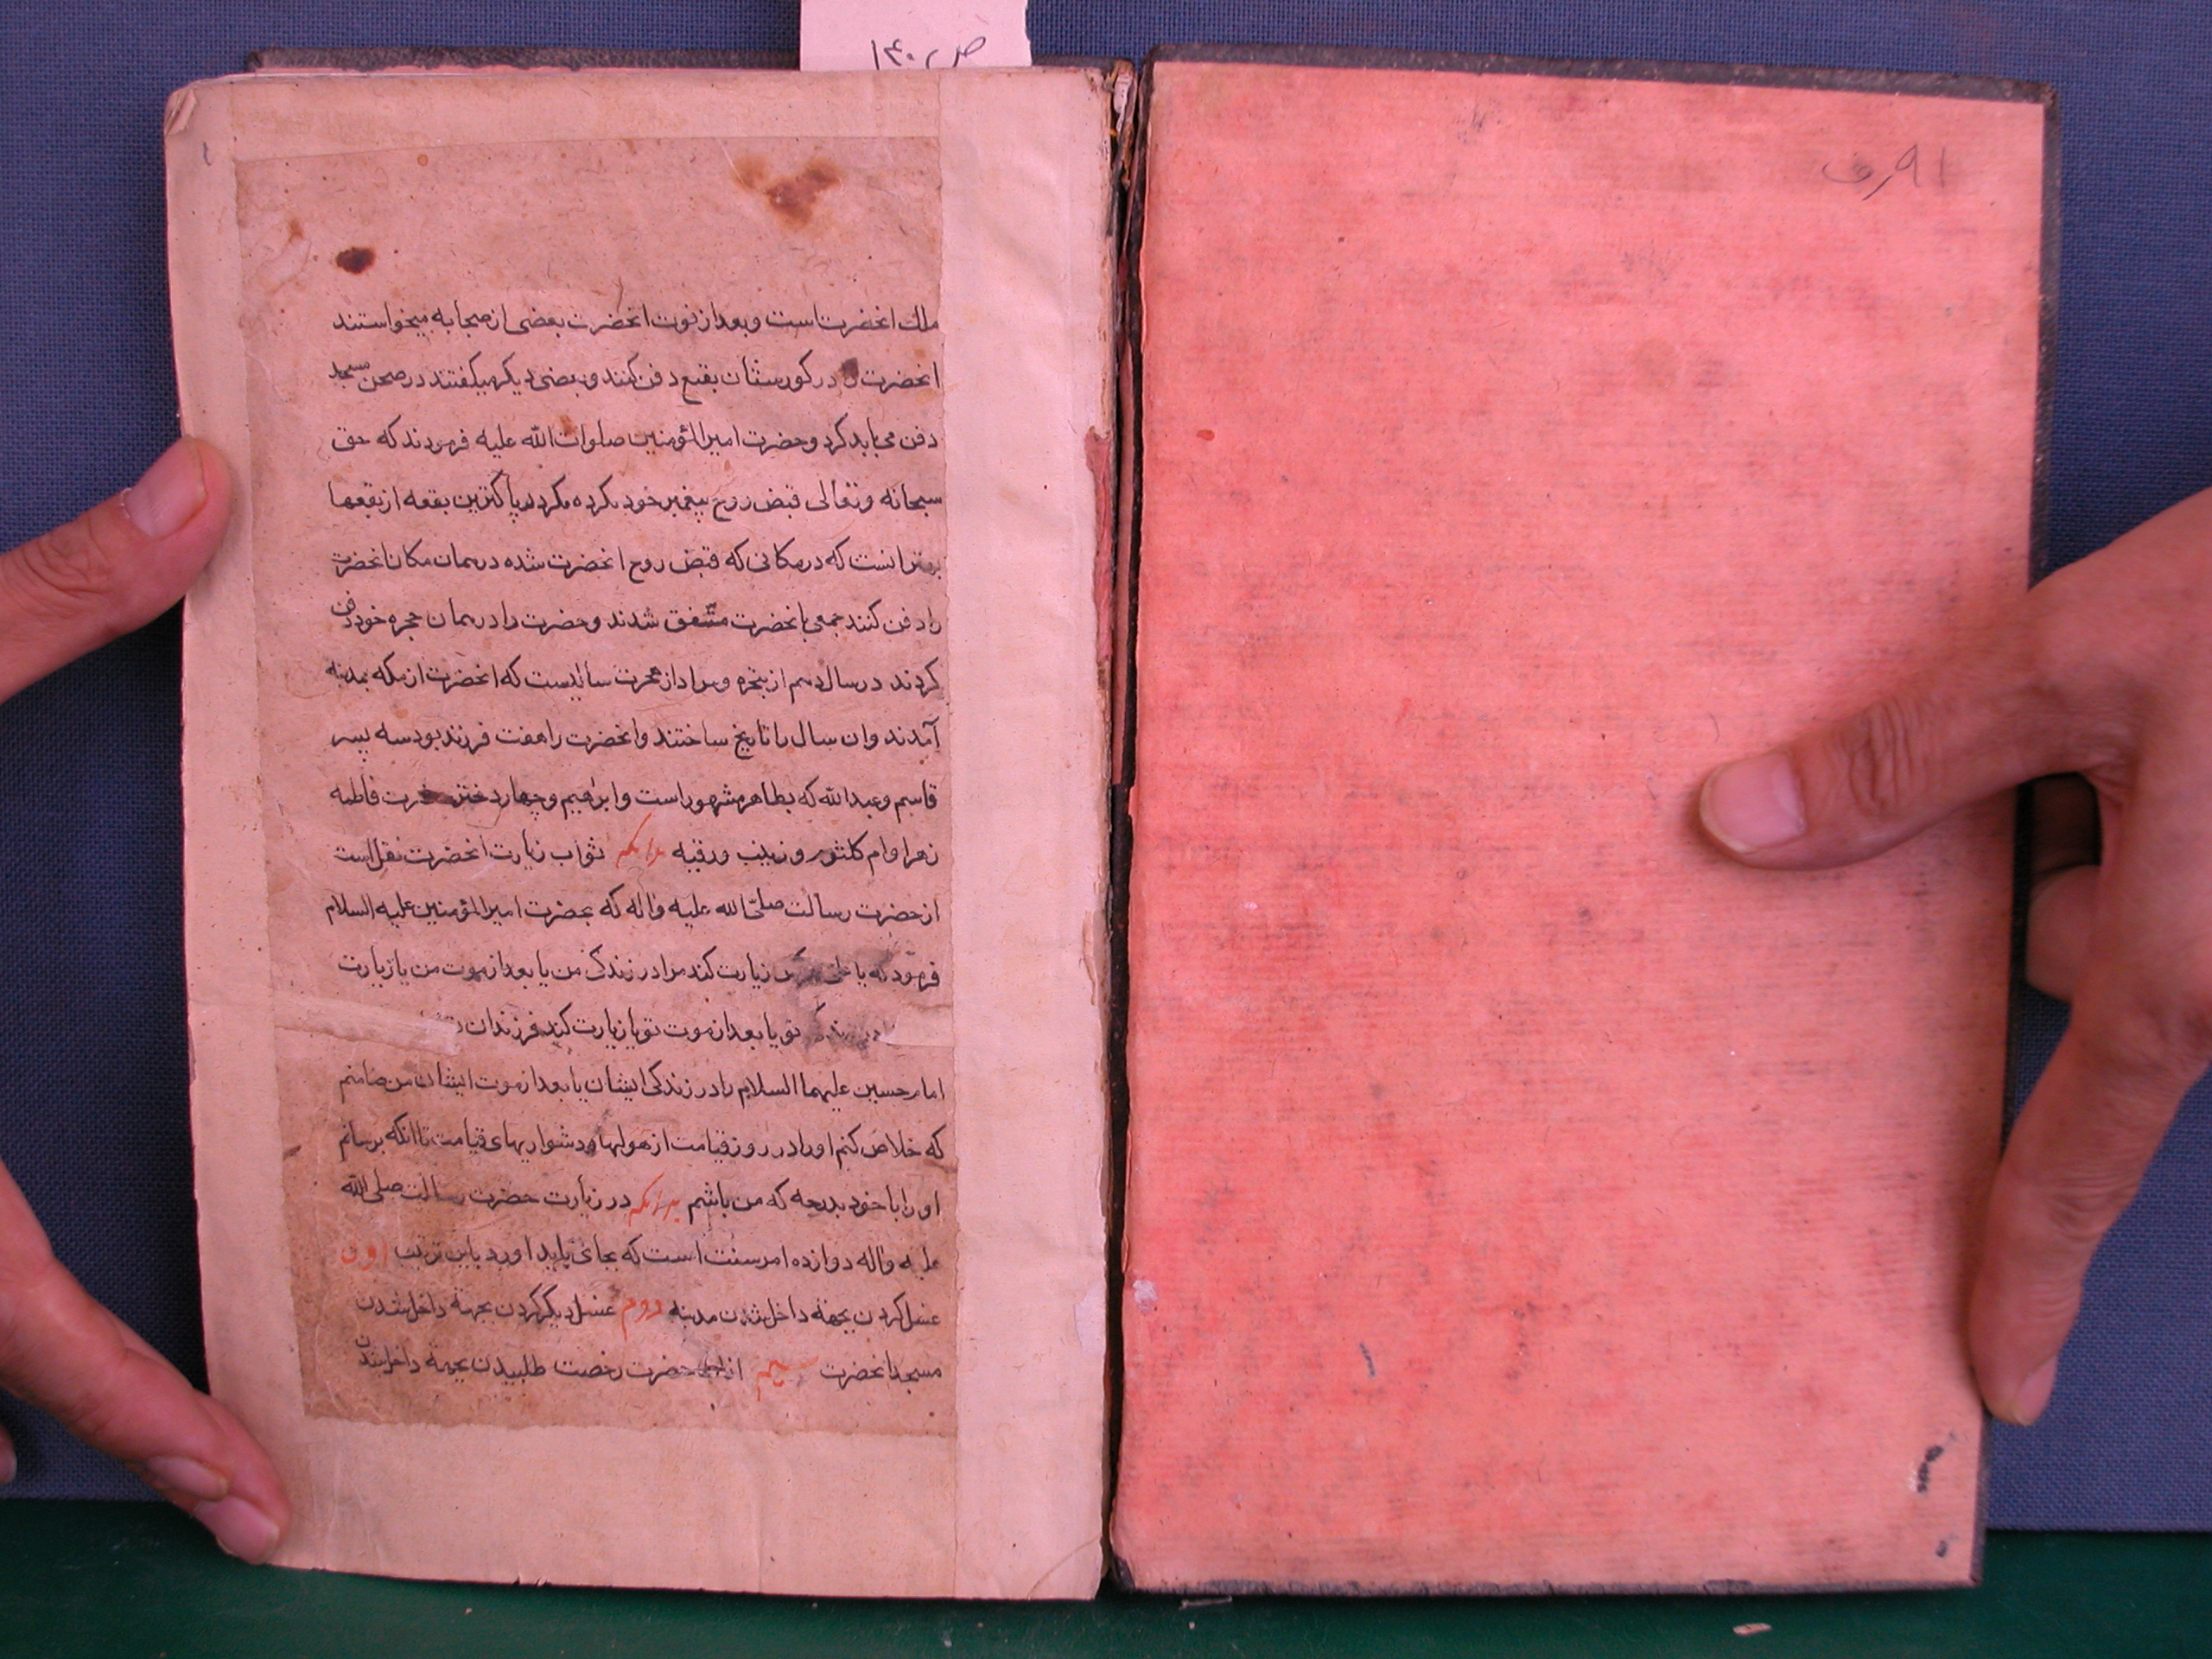 ص ۱۴۰
۹۱
ملك انحضرت است و بعد از فوت انحضرت بعضی از صحابه میخواستند
انحضرت را در كورستان بقیع دفن كنند و بعضی دیكر میكفتند در صحن مسجد
دفن می باید كرد و حضرت امیر المؤمنین صلوات الله علیه فرمودند كه حق
سبحانه و تعالی قبض روح پیغمبر خود نكرده مكر در پاكترین بقعه از بقعها
بهتر انست كه در مكانی كه قبض روح انحضرت شده در همان مكان انحضرت
را دفن كنند جمعی بانحضرت متفق شدند و حضرت را در همان حجره خود دفن
كردند در سال دهم از هجرة و مراد از هجرت سالیست كه انحضرت از مكه بمدینه
آمدند و ان سال را تاریخ ساختند و انحضرت را هفت فرزند بود سه پسر
قاسم و عبد الله كه بطاهر مشهور است و ابراهیم و چهار دختر حضرت فاطمه
زهرا و ام كلثوم و زینب و رقیه بدانكه ثواب زیارت انحضرت نقل است
از حضرت رسالت صلی الله علیه واله كه بحضرت امیر المؤمنین علیه السلام
فرمود كه یا علی هركس زیارت كند مرا در زندكی من یا بعد از موت من یا زیارت
تو یا بعد از موت تو یا زیارت كند فرزندان
امام حسین علیهما السلام را در زندكی ایشان یا بعد از موت ایشان من ضامنم
كه خلاص كنم او را در روز قیامت از هولها و دشواریهای قیامت تا انكه برسانم
او را با خود بدرجه كه من باشم بدانكه در زیارت حضرت رسالت صلی الله
علیه واله دوازده امر سنت است كه بجای باید اورد باین ترتیب اول
غسل كردن بجهة داخل شدن مدینه دوم غسل دیكر كردن بجهة داخل شدن
مسجد انحضرت از حضرت رخصت طلبیدن بجهة داخل شدن